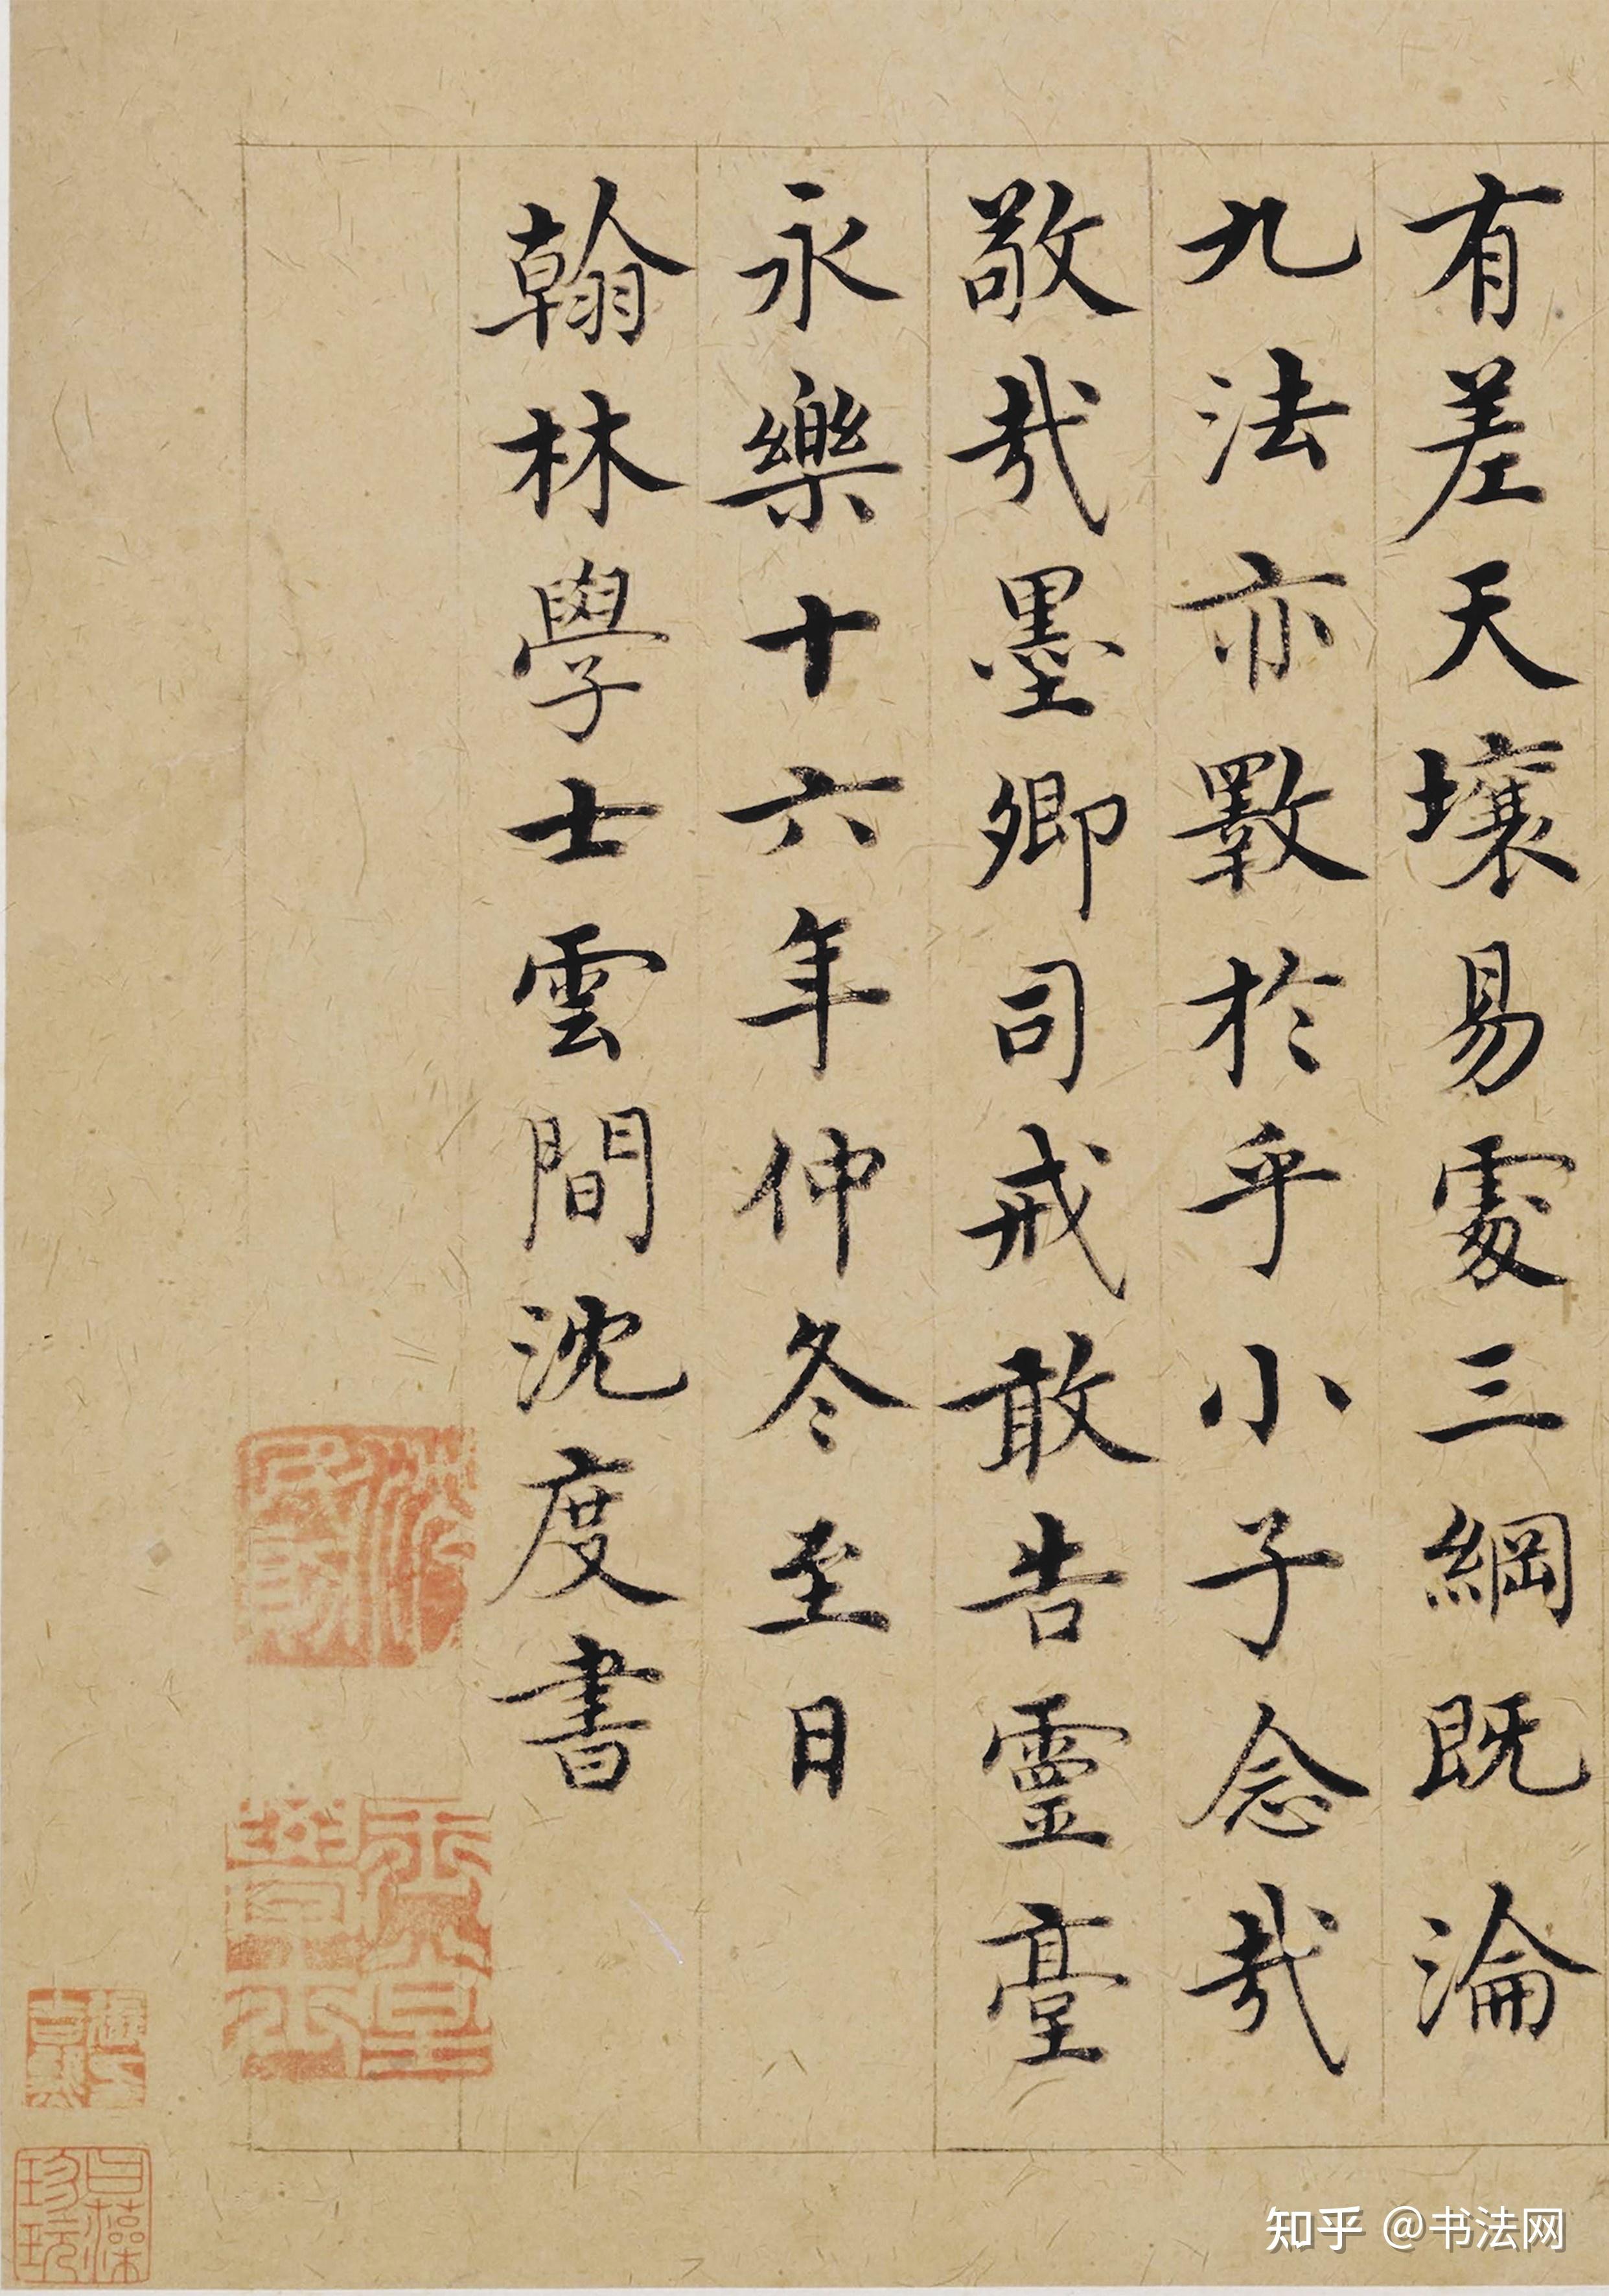 有差天壤易處三綱既淪
九法亦斁於乎小子念哉
敬哉墨卿司戒敢告靈臺
永樂十六年仲冬至日
翰林學士雲間沈度書
知乎 @书法网